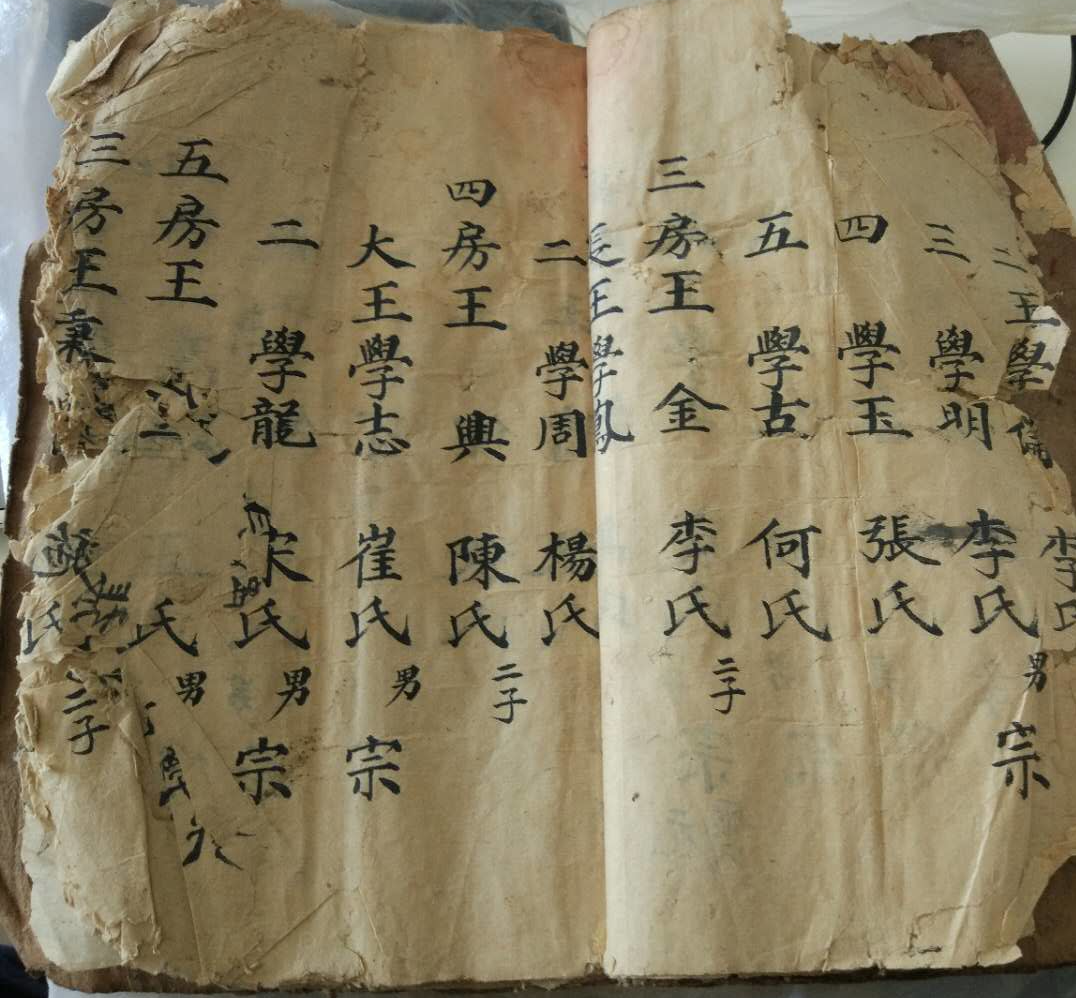 二王學 李氏
三 學明 李氏 男 宗
四 學玉 張氏
五 學古 何氏
三房王 金 李氏 二子
長王學鳳
二 學周 楊氏
四房王 興 陳氏 二子
大王學志 崔氏 男 宗
二 學龍 宋氏 男 宗
五房王 氏 男
三房王秉 氏 二子